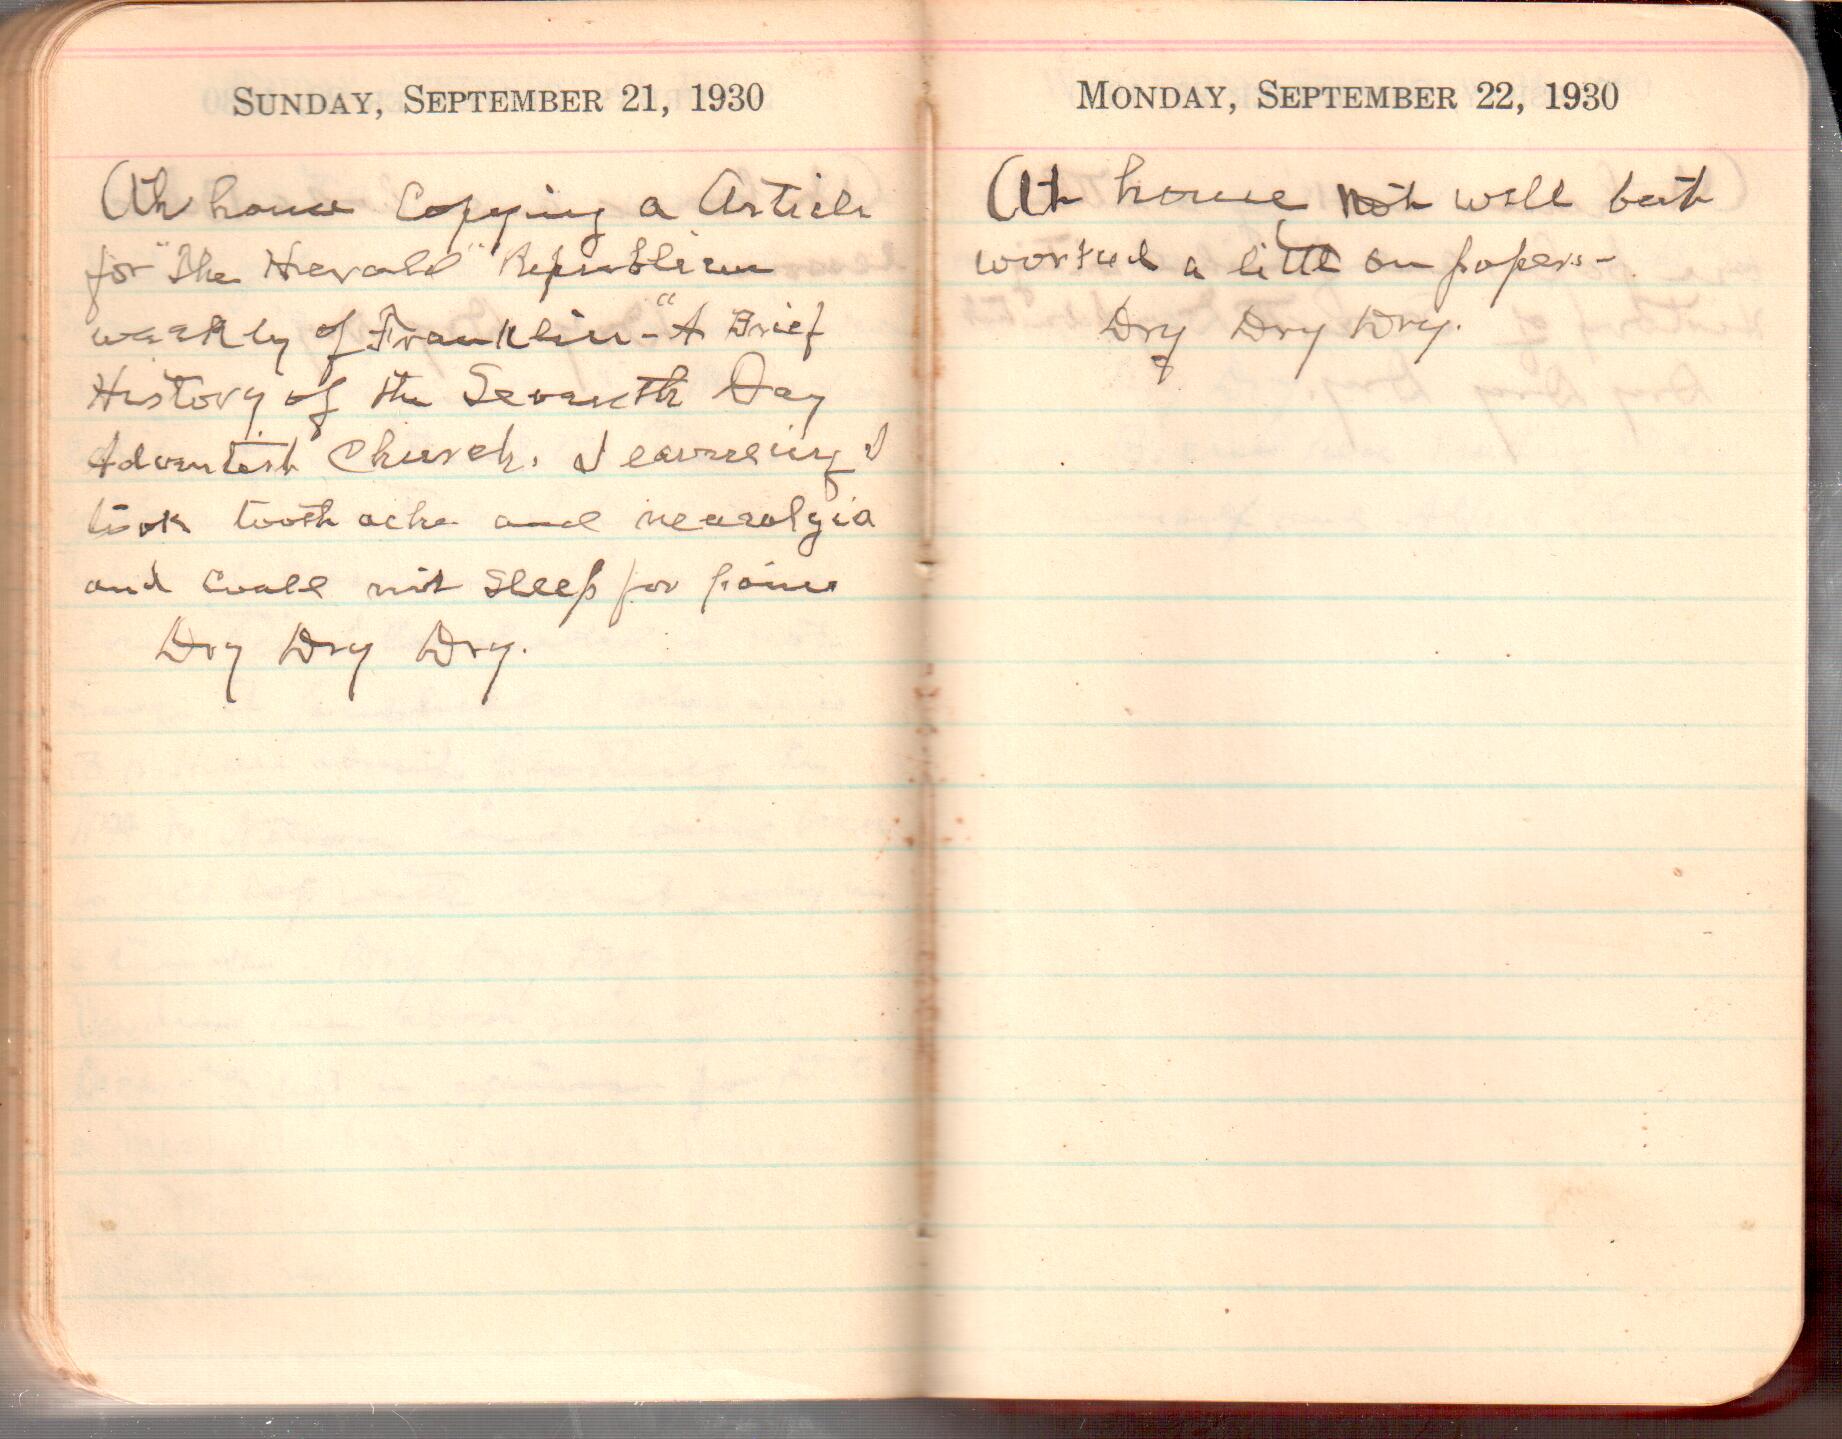 SUNDAY, SEPTEMBER 21, 1930
At home Copying a Article
for "The Herald" Republican
weekly of Franklin - "A Brief
History of the Seventh Day
Adventist Church. I evening I
took tooth ache and nearalgia
and coull not sleep for pain
Dry Dry Dry.
MONDAY, SEPTEMBER 22, 1930
At home Not well but
worked a little on papers -
Dry Dry Dry.